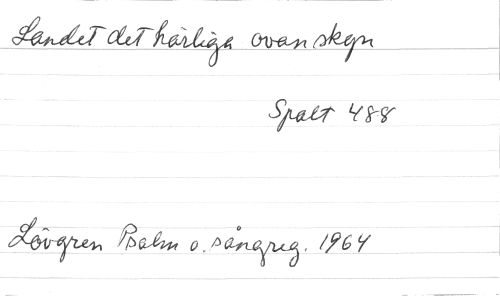 Landet det härliga ovan skyn
Spalt 488
Lövgren Psalm o. sångreg. 1964